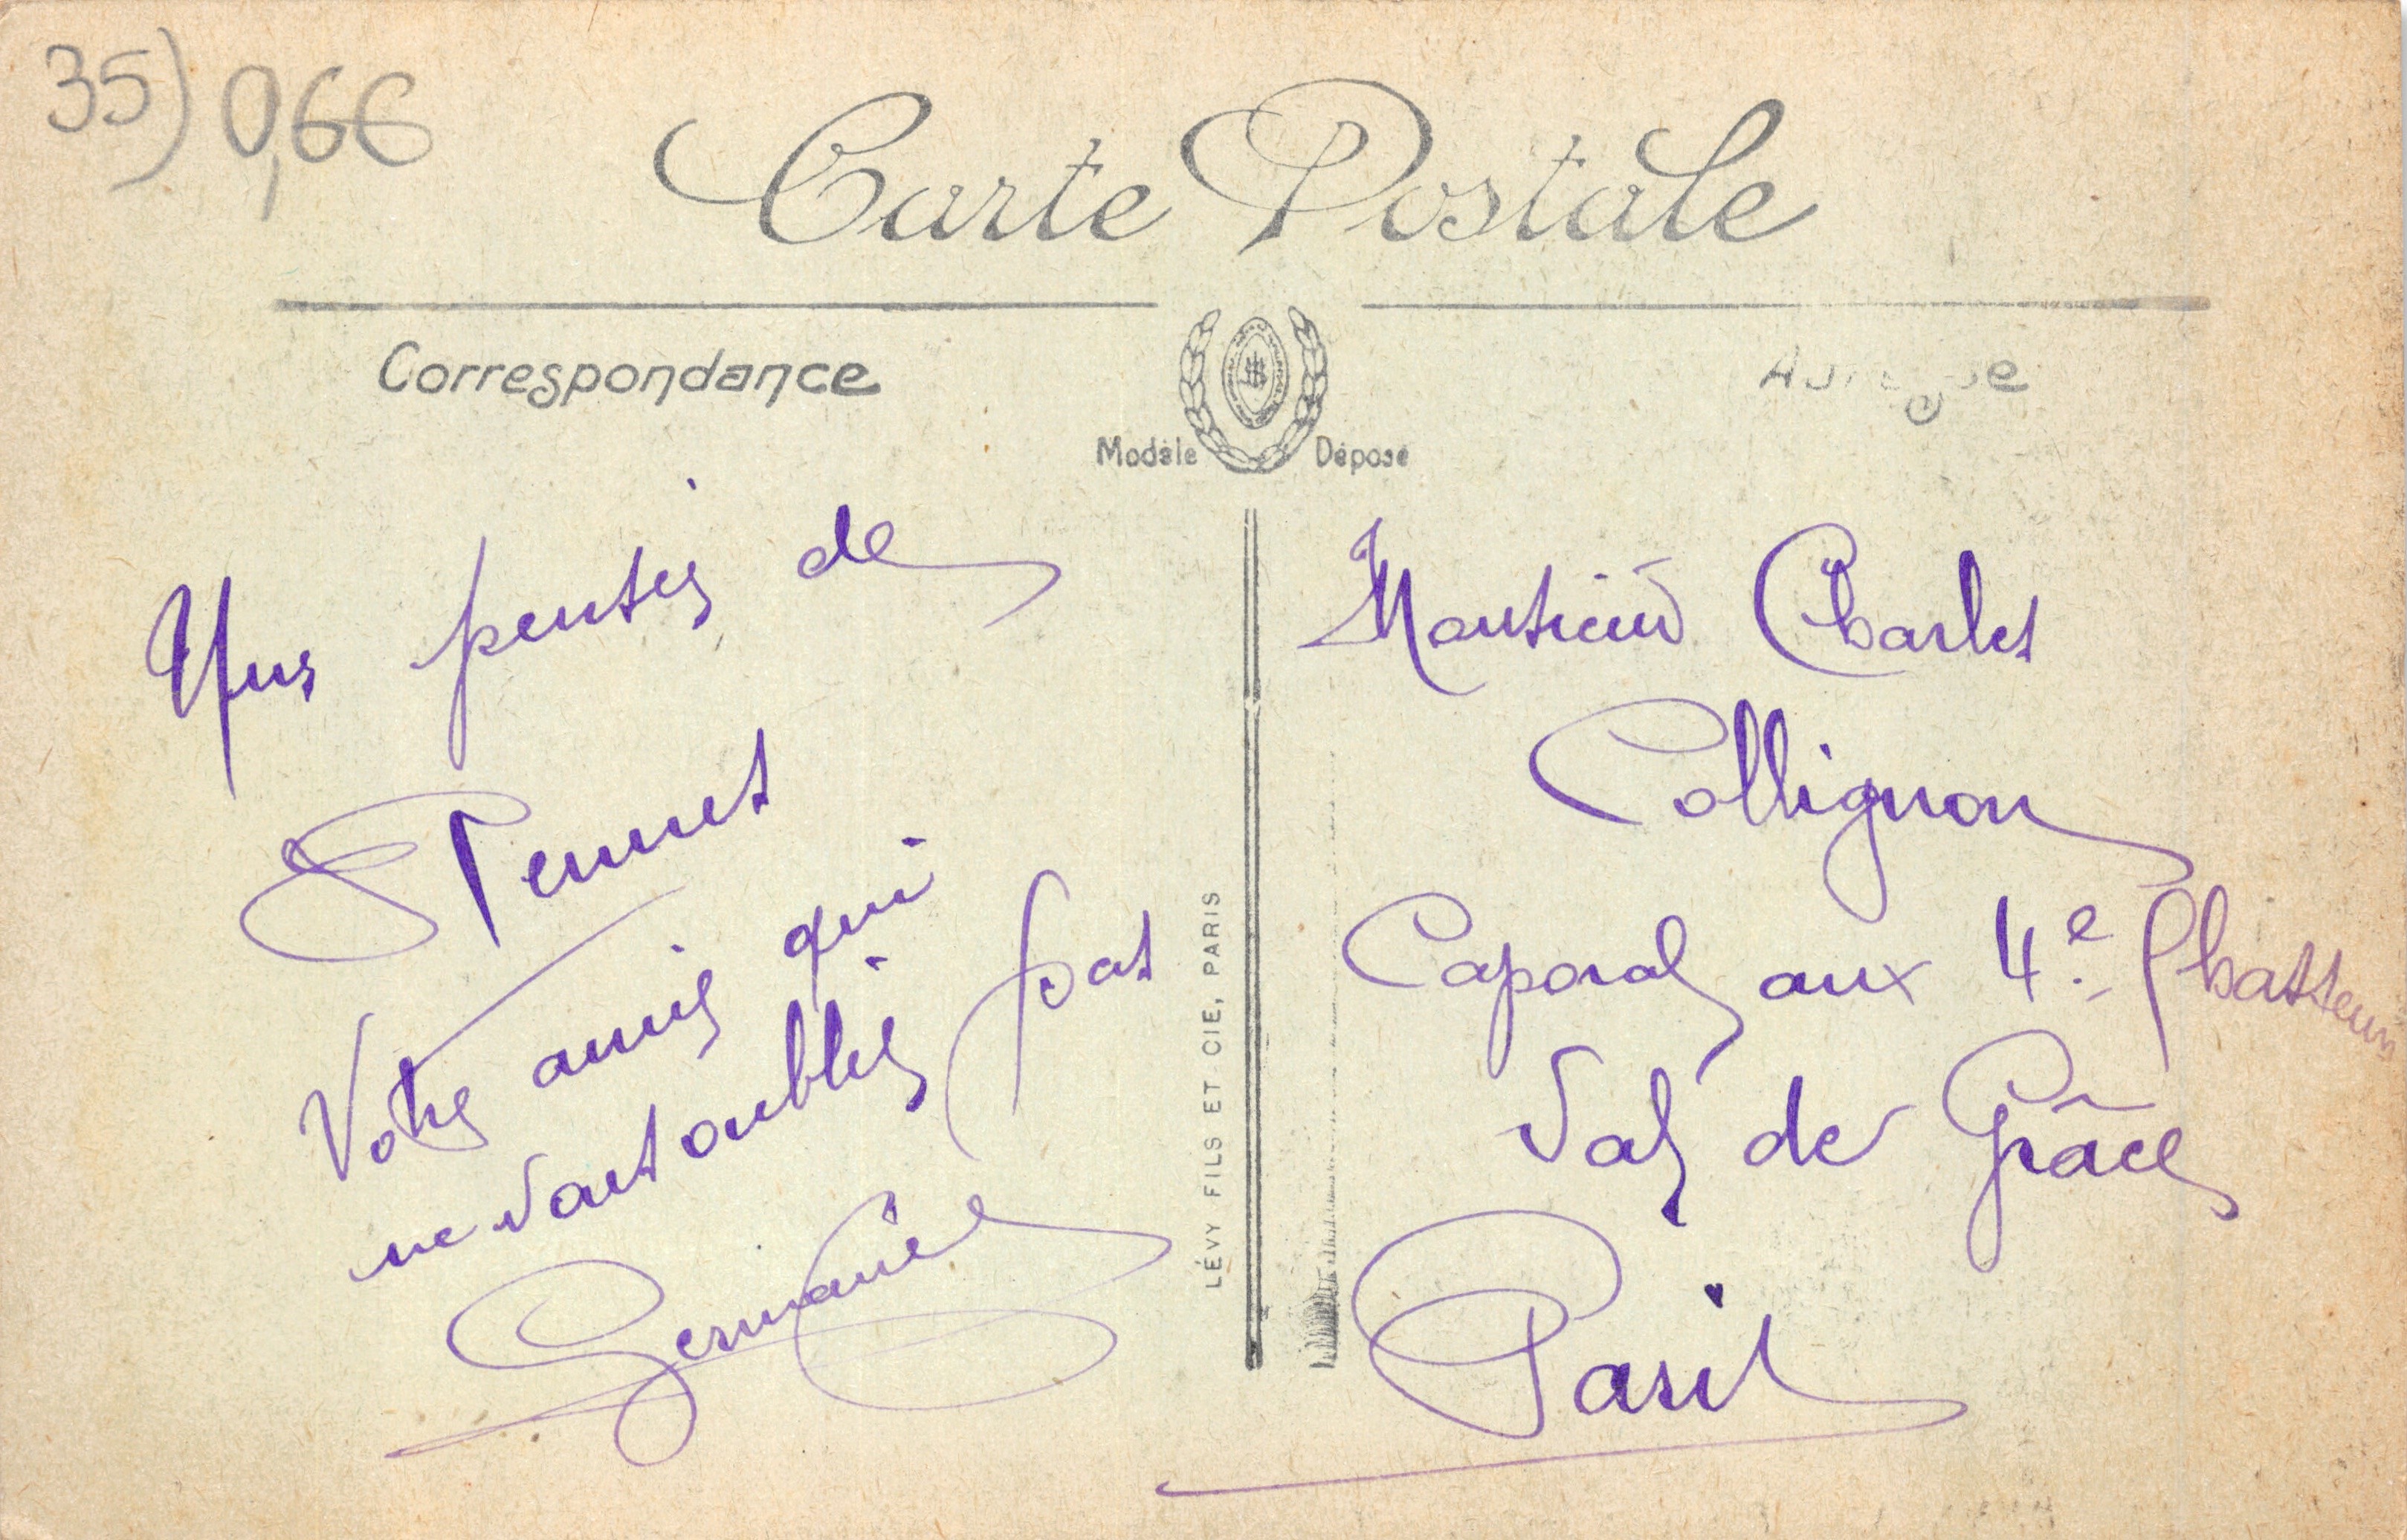 35) 0,6€
Carte Postale
Correspondance
Adresse
Modèle Déposé
Une pensée de
Rennes
Votre amie qui
ne vous oublie pas
Germaine
LÉVY FILS ET CIE, PARIS
Monsieur Charles
Collignon
Caporal aux 4e Chasseurs
Val de Grâce
Paris